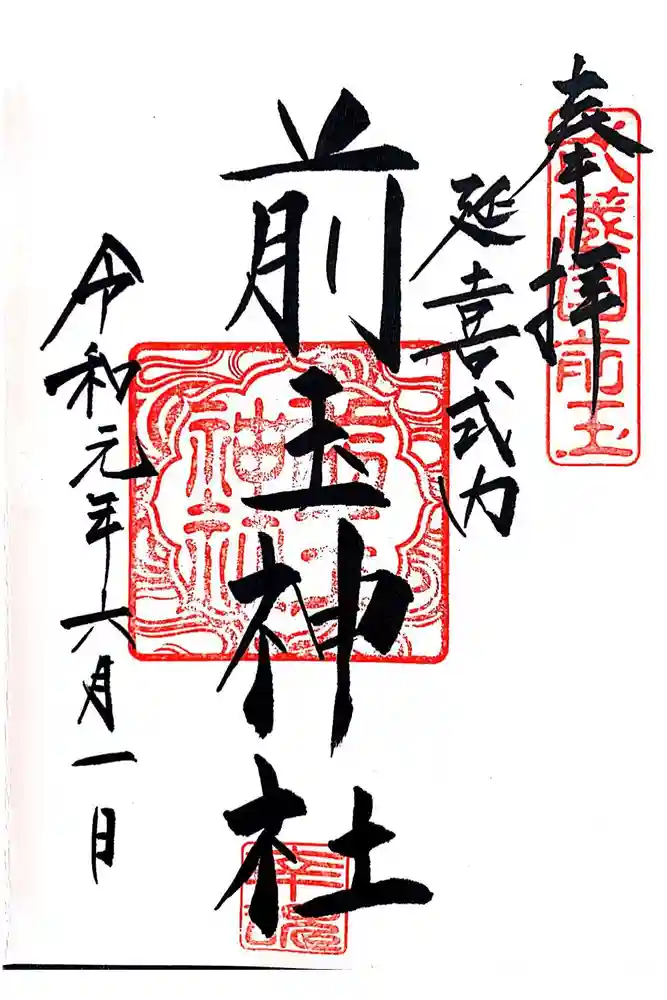 奉拝
武蔵国前玉
延喜式内
前玉神社
前玉神社
令和元年六月一日